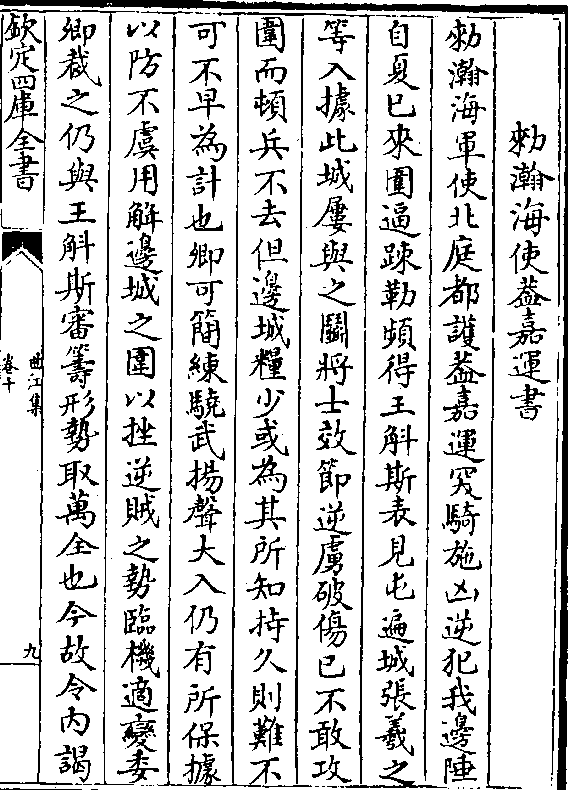 勅瀚海使葢嘉運書
勅瀚海軍使北庭都護葢嘉運突騎施凶逆犯我邊陲
自夏已來圍逼踈勒頻得王斛斯表見屯遍城張羲之
等入據此城屢與之鬭將士效節逆虜破傷已不敢攻
圍而頓兵不去但邊城糧少或為其所知持久則難不
可不早為計也卿可簡練驍武揚聲大入仍有所保據
以防不虞用解邊城之圍以挫逆賊之勢臨機適變委
卿裁之仍與王斛斯審籌形勢取萬全也今故令内謁
欽定四庫全書
曲江集
卷十
九